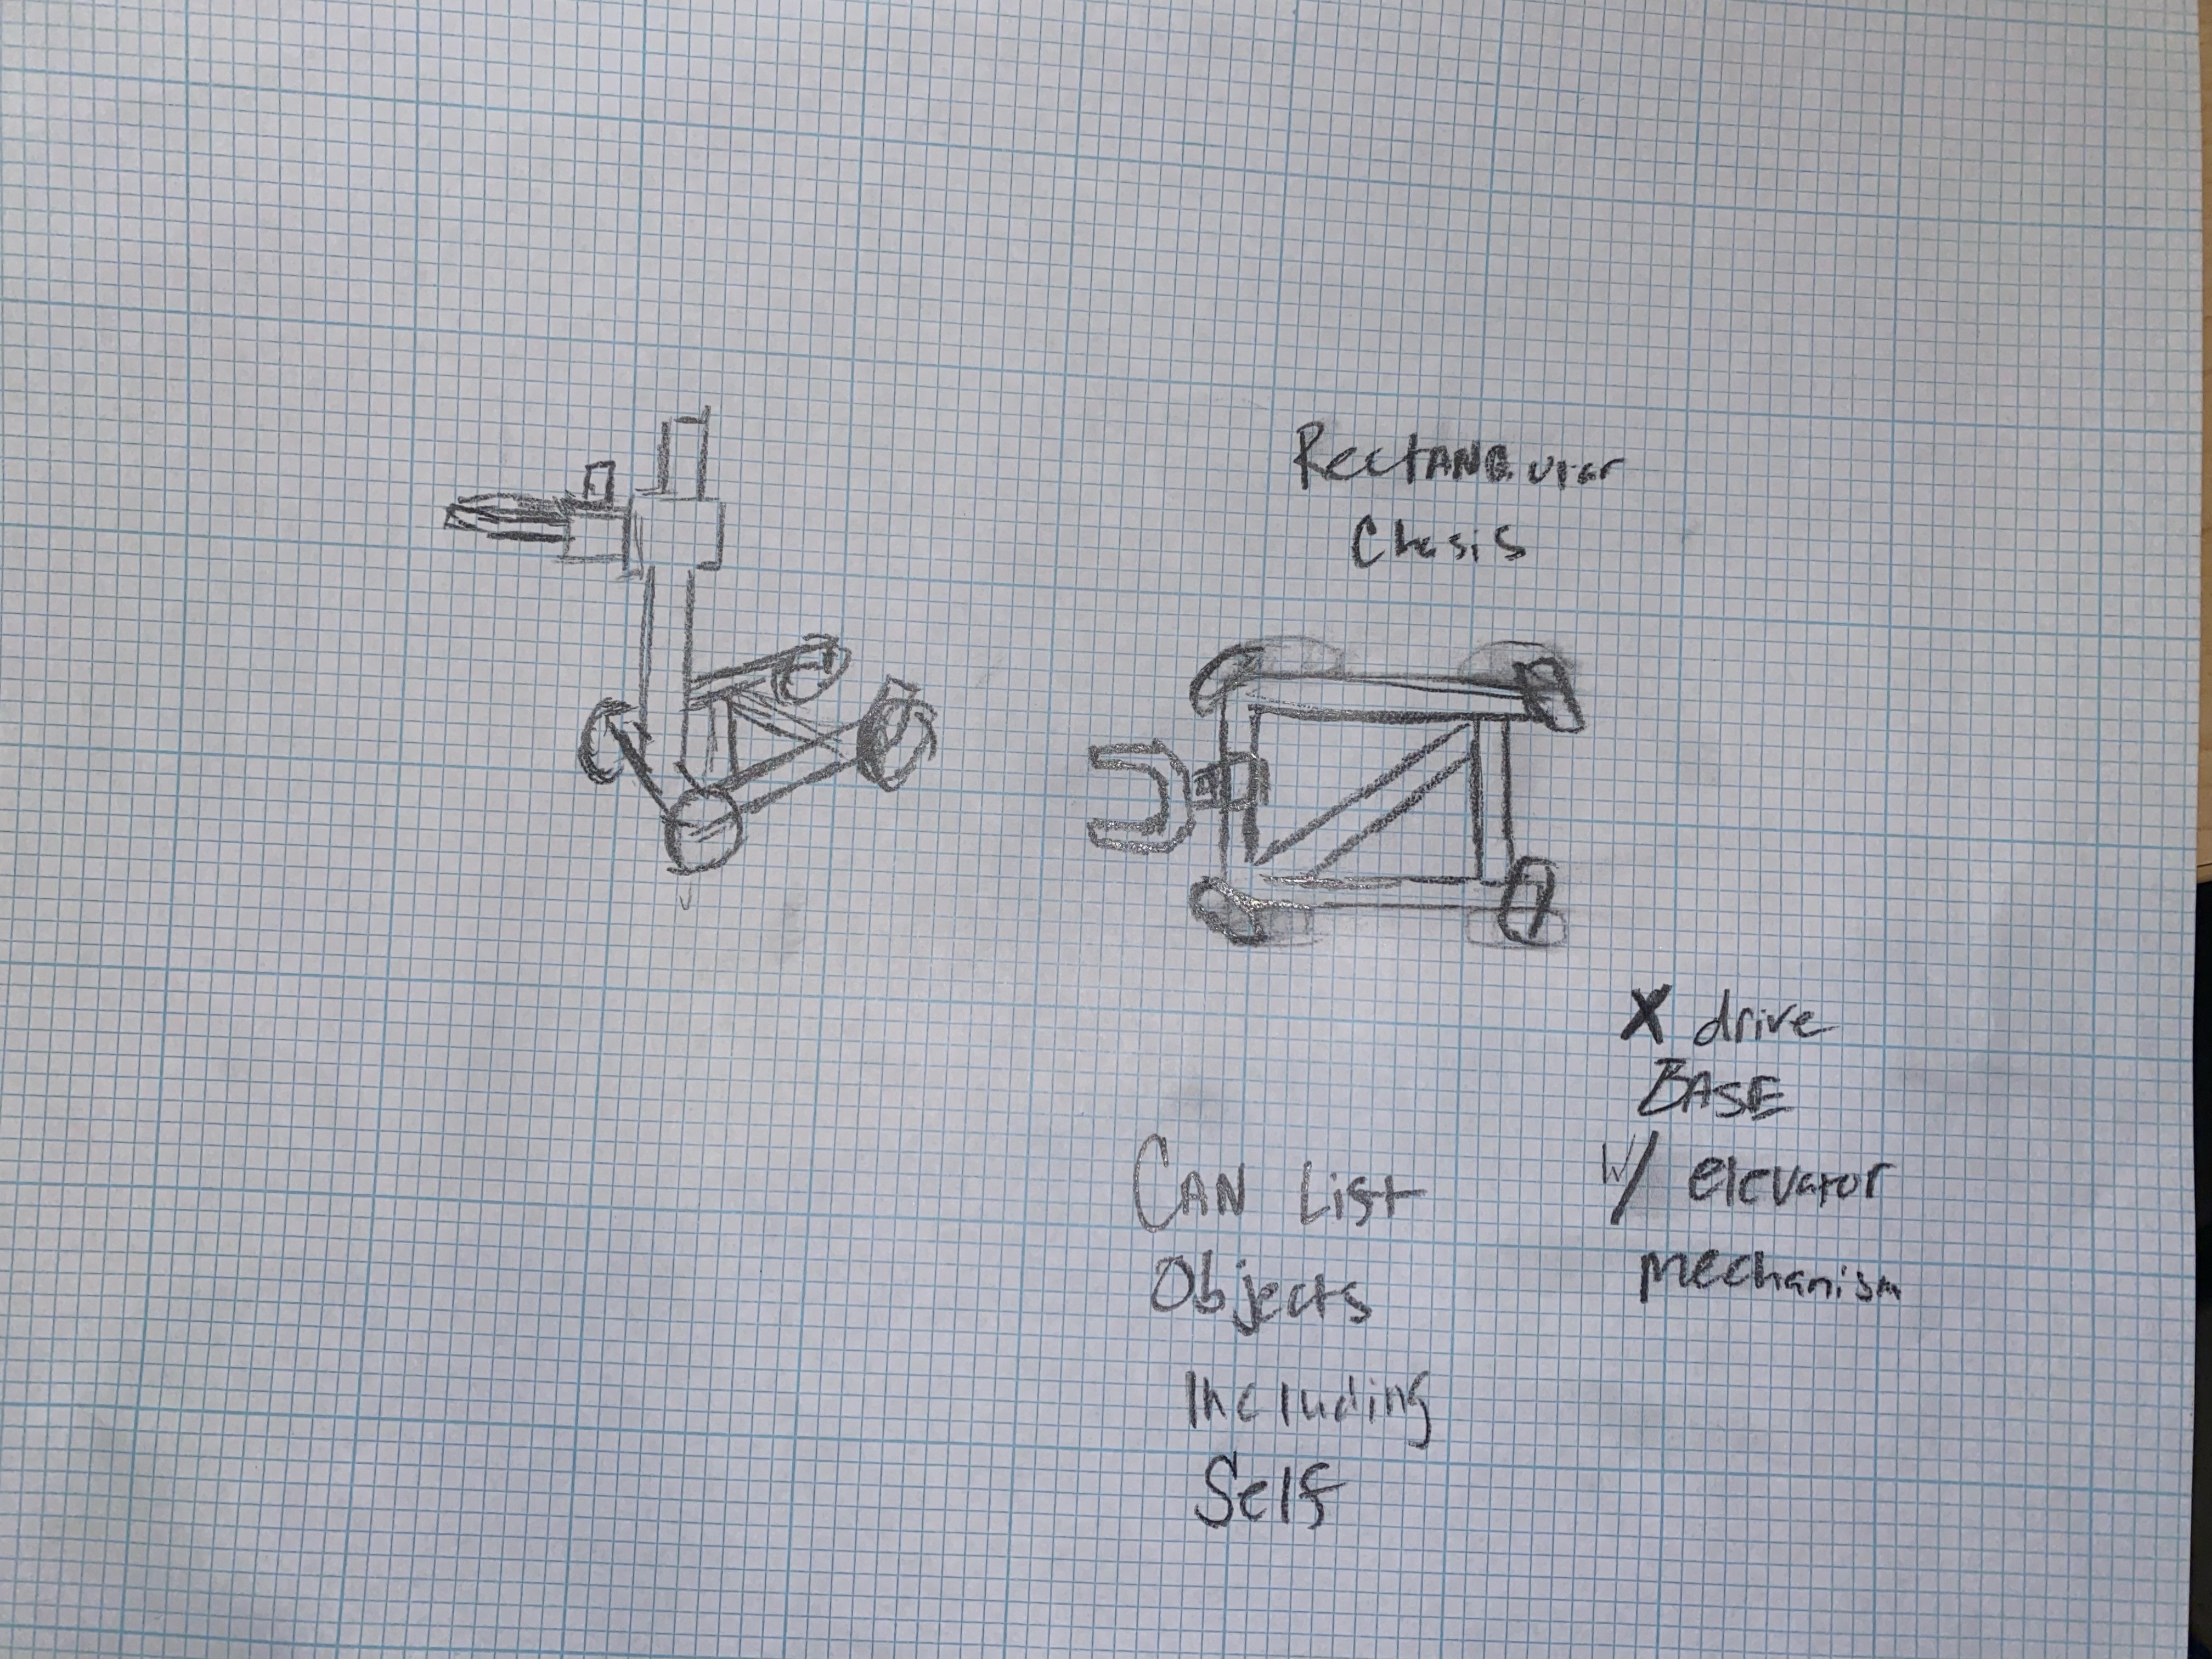 RectANGular
Chasis
X drive
BASE
W/ elevator
mechanism
CAN List
Objects
Including
Self